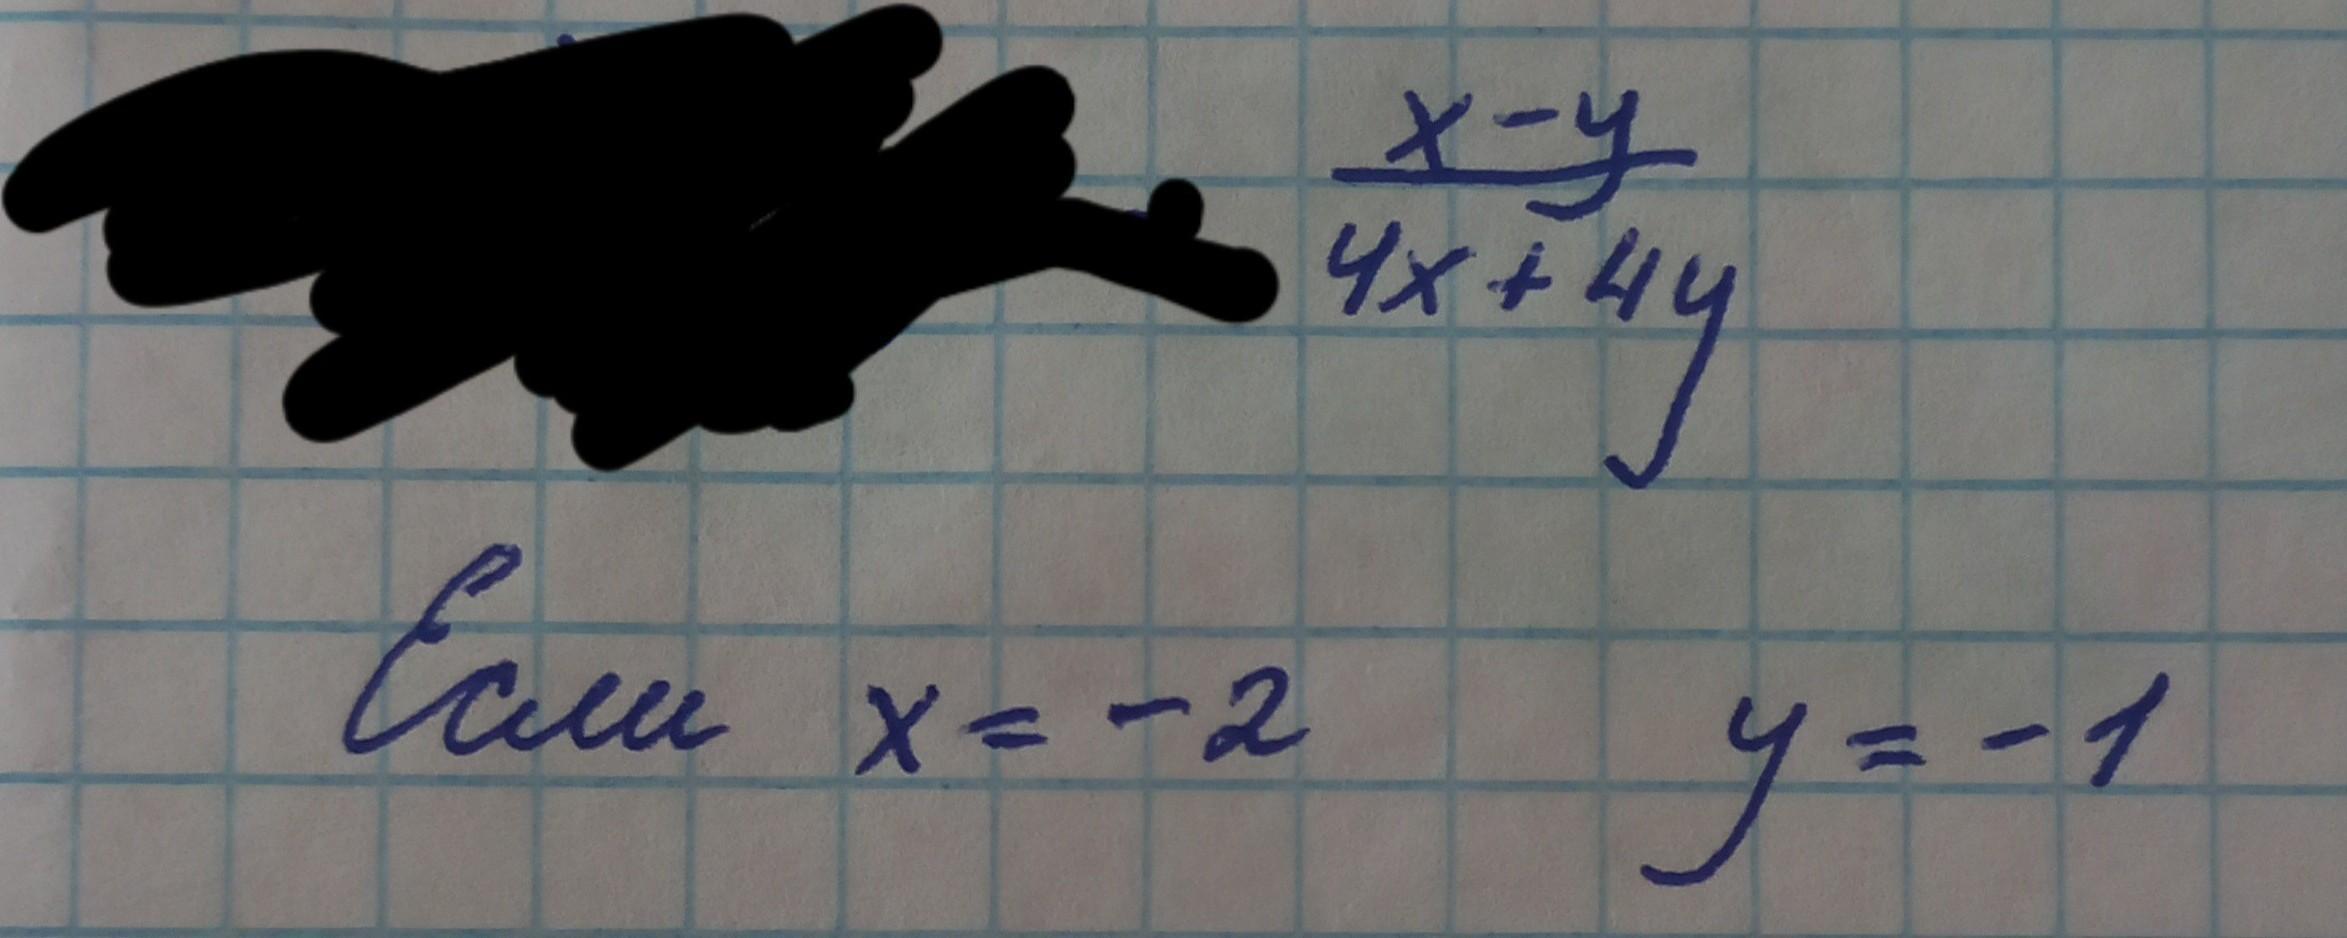 x - y
4x + 4y
Если x = -2 y = -1